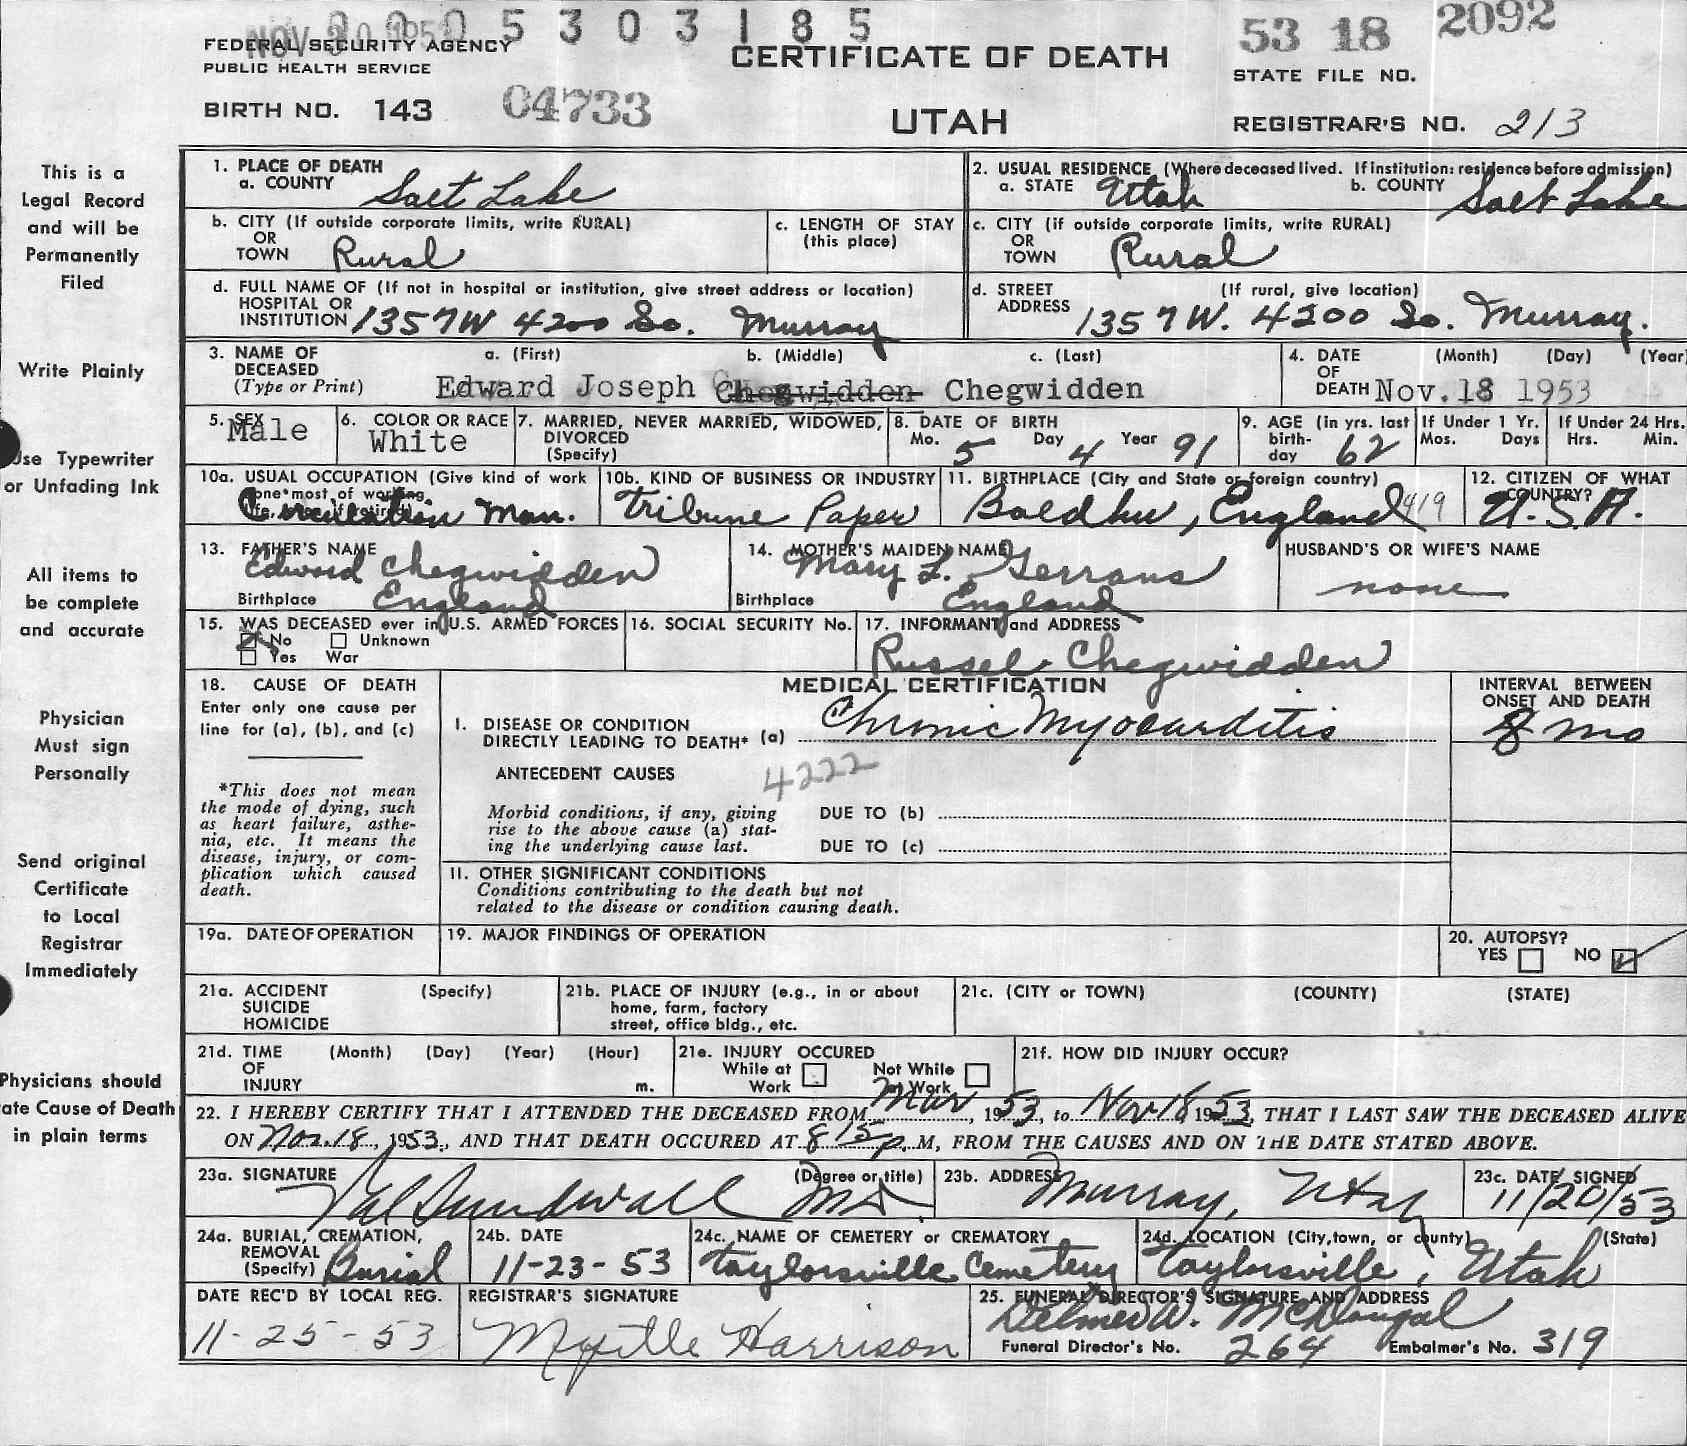 NOV 30 1953
5 3 0 3 1 8 5
53 18 2092
FEDERAL SECURITY AGENCY
PUBLIC HEALTH SERVICE
CERTIFICATE OF DEATH
STATE FILE NO.
BIRTH NO. 143 04733
UTAH
REGISTRAR'S NO. 213
This is a
Legal Record
and will be
Permanently
Filed
1. PLACE OF DEATH
a. COUNTY Salt Lake
2. USUAL RESIDENCE (Where deceased lived. If institution: residence before admission)
a. STATE Utah b. COUNTY Salt Lake
b. CITY (If outside corporate limits, write RURAL)
OR
TOWN Rural
c. LENGTH OF STAY
(this place)
c. CITY (if outside corporate limits, write RURAL)
OR
TOWN Rural
d. FULL NAME OF (If not in hospital or institution, give street address or location)
HOSPITAL OR
INSTITUTION 1357 W 4200 So. Murray
d. STREET (If rural, give location)
ADDRESS 1357 W. 4200 So. Murray.
Write Plainly
3. NAME OF DECEASED
(Type or Print)
a. (First) b. (Middle) c. (Last)
Edward Joseph Chegwidden Chegwidden
4. DATE OF DEATH (Month) (Day) (Year)
Nov. 18 1953
5. SEX
Male
6. COLOR OR RACE
White
7. MARRIED, NEVER MARRIED, WIDOWED,
DIVORCED
(Specify)
8. DATE OF BIRTH
Mo. 5 Day 4 Year 91
9. AGE (in yrs. last
birth-
day 62
If Under 1 Yr.
Mos. Days
If Under 24 Hrs.
Hrs. Min.
Use Typewriter
or Unfading Ink
10a. USUAL OCCUPATION (Give kind of work
done most of working
life, even if retired)
Circulation Man.
10b. KIND OF BUSINESS OR INDUSTRY
Tribune Paper
11. BIRTHPLACE (City and State or foreign country)
Baldhu, England 419
12. CITIZEN OF WHAT
COUNTRY?
U.S.A.
All items to
be complete
and accurate
13. FATHER'S NAME
Edward Chegwidden
Birthplace England
14. MOTHER'S MAIDEN NAME
Mary L. Gerrans
Birthplace England
HUSBAND'S OR WIFE'S NAME
none
15. WAS DECEASED ever in U.S. ARMED FORCES
No Unknown
Yes War
16. SOCIAL SECURITY No.
17. INFORMANT and ADDRESS
Russel Chegwidden
Physician
Must sign
Personally
18. CAUSE OF DEATH
Enter only one cause per
line for (a), (b), and (c)
*This does not mean
the mode of dying, such
as heart failure, asthe-
nia, etc. It means the
disease, injury, or com-
plication which caused
death.
MEDICAL CERTIFICATION
INTERVAL BETWEEN
ONSET AND DEATH
I. DISEASE OR CONDITION
DIRECTLY LEADING TO DEATH* (a) Chronic Myocarditis
8 mo
ANTECEDENT CAUSES 4222
Morbid conditions, if any, giving
rise to the above cause (a) stat-
ing the underlying cause last.
DUE TO (b)
DUE TO (c)
II. OTHER SIGNIFICANT CONDITIONS
Conditions contributing to the death but not
related to the disease or condition causing death.
Send original
Certificate
to Local
Registrar
Immediately
19a. DATE OF OPERATION
19. MAJOR FINDINGS OF OPERATION
20. AUTOPSY?
YES NO
21a. ACCIDENT (Specify)
SUICIDE
HOMICIDE
21b. PLACE OF INJURY (e.g., in or about
home, farm, factory
street, office bldg., etc.
21c. (CITY or TOWN) (COUNTY) (STATE)
21d. TIME (Month) (Day) (Year) (Hour)
OF
INJURY m.
21e. INJURY OCCURED
While at Work
Not While at Work
21f. HOW DID INJURY OCCUR?
Physicians should
ate Cause of Death
in plain terms
22. I HEREBY CERTIFY THAT I ATTENDED THE DECEASED FROM Mar, 1953, to Nov 18, 1953, THAT I LAST SAW THE DECEASED ALIVE
ON Nov. 18, 1953, AND THAT DEATH OCCURED AT 8:15 p. M, FROM THE CAUSES AND ON THE DATE STATED ABOVE.
23a. SIGNATURE (Degree or title)
Val Sundwall MD.
23b. ADDRESS
Murray, Utah
23c. DATE SIGNED
11/20/53
24a. BURIAL, CREMATION,
REMOVAL
(Specify) Burial
24b. DATE
11-23-53
24c. NAME OF CEMETERY or CREMATORY
Taylorsville Cemetery
24d. LOCATION (City, town, or county) (State)
Taylorsville, Utah
DATE REC'D BY LOCAL REG.
11-25-53
REGISTRAR'S SIGNATURE
Myrtle Harrison
25. FUNERAL DIRECTOR'S SIGNATURE AND ADDRESS
Delmer W. McDougal
Funeral Director's No. 264 Embalmer's No. 319